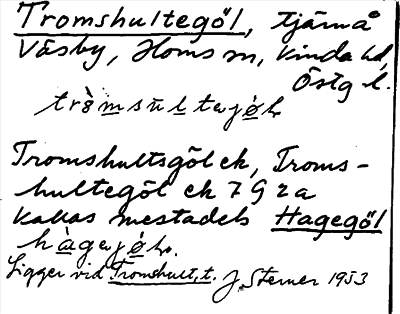 Tromshultegöl, tjärn å
Väsby, Horns sn, Kinda hd,
Östg l.
Tromshultsgöl ek, Troms-
hultegöl ek 7 G 2a
kallas mestadels Hagegöl
Ligger vid Tromshult, t. J. Sterner 1953